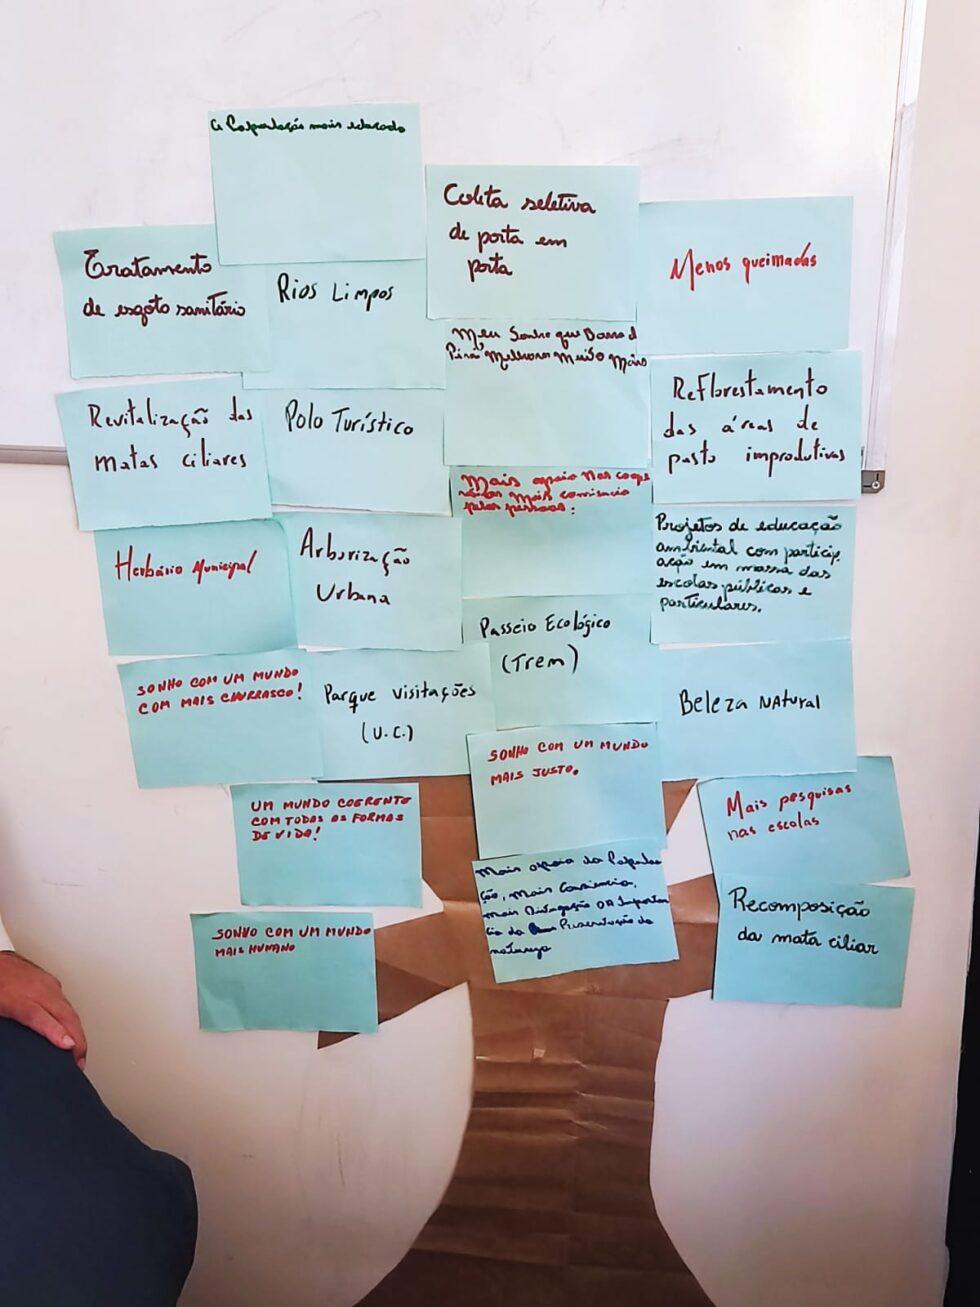 a População mais educada
Coleta seletiva
de porta em
porta
Menos queimadas
Tratamento
de esgoto sanitário
Rios Limpos
Meu Sonho que Barra d
Piraí Melhora Muito Mais
Revitalização das
matas ciliares
Polo Turístico
Reflorestamento
das áreas de
pasto improdutivas
Mais apoio nas
Mais
pelas pessoas.
Herbário Municipal
Arborização
Urbana
Projetos de educação
ambiental com particip
ação em massa das
escolas públicas e
particulares.
Passeio Ecológico
(Trem)
SONHO COM UM MUNDO
COM MAIS CHURRASCO!
Parque visitações
(U.C.)
Beleza NAtural
SONHO COM UM MUNDO
MAIS JUSTO.
UM MUNDO COERENTE
COM TODAS AS FORMAS
DE VIDA!
Mais pesquisas
nas escolas
Mais apoio da Popula
ção, mais
mais Divulgação DA Importan
cia da Preservação da
natureza
Recomposição
da mata ciliar
SONHO COM UM MUNDO
MAIS HUMANO